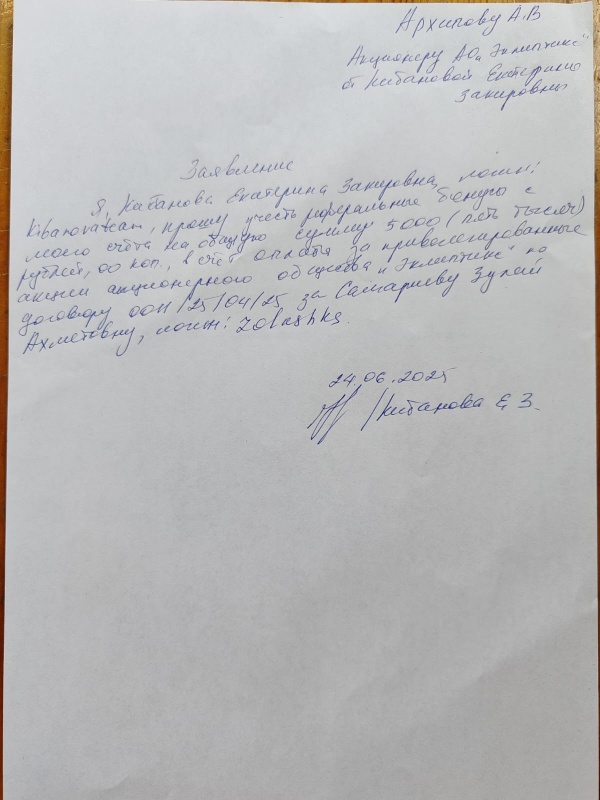 Архипову А.В
Акционеру АО „Эклиптикс"
от Кибановой Екатерины
Закировны
Заявление
Я, Кибанова Екатерина Закировна, логин:
прошу учесть реферальные бонусы с
моего счёта на общую сумму 5000 (пять тысяч)
рублей, 00 коп., в счёт оплаты за привелегированные
акции акционерного общества „Эклиптикс" по
договору 0011/25/04/25 за Самариеву Зулай
Ахметовну, логин: Zolushka.
24.06.2025
/Кибанова Е З.